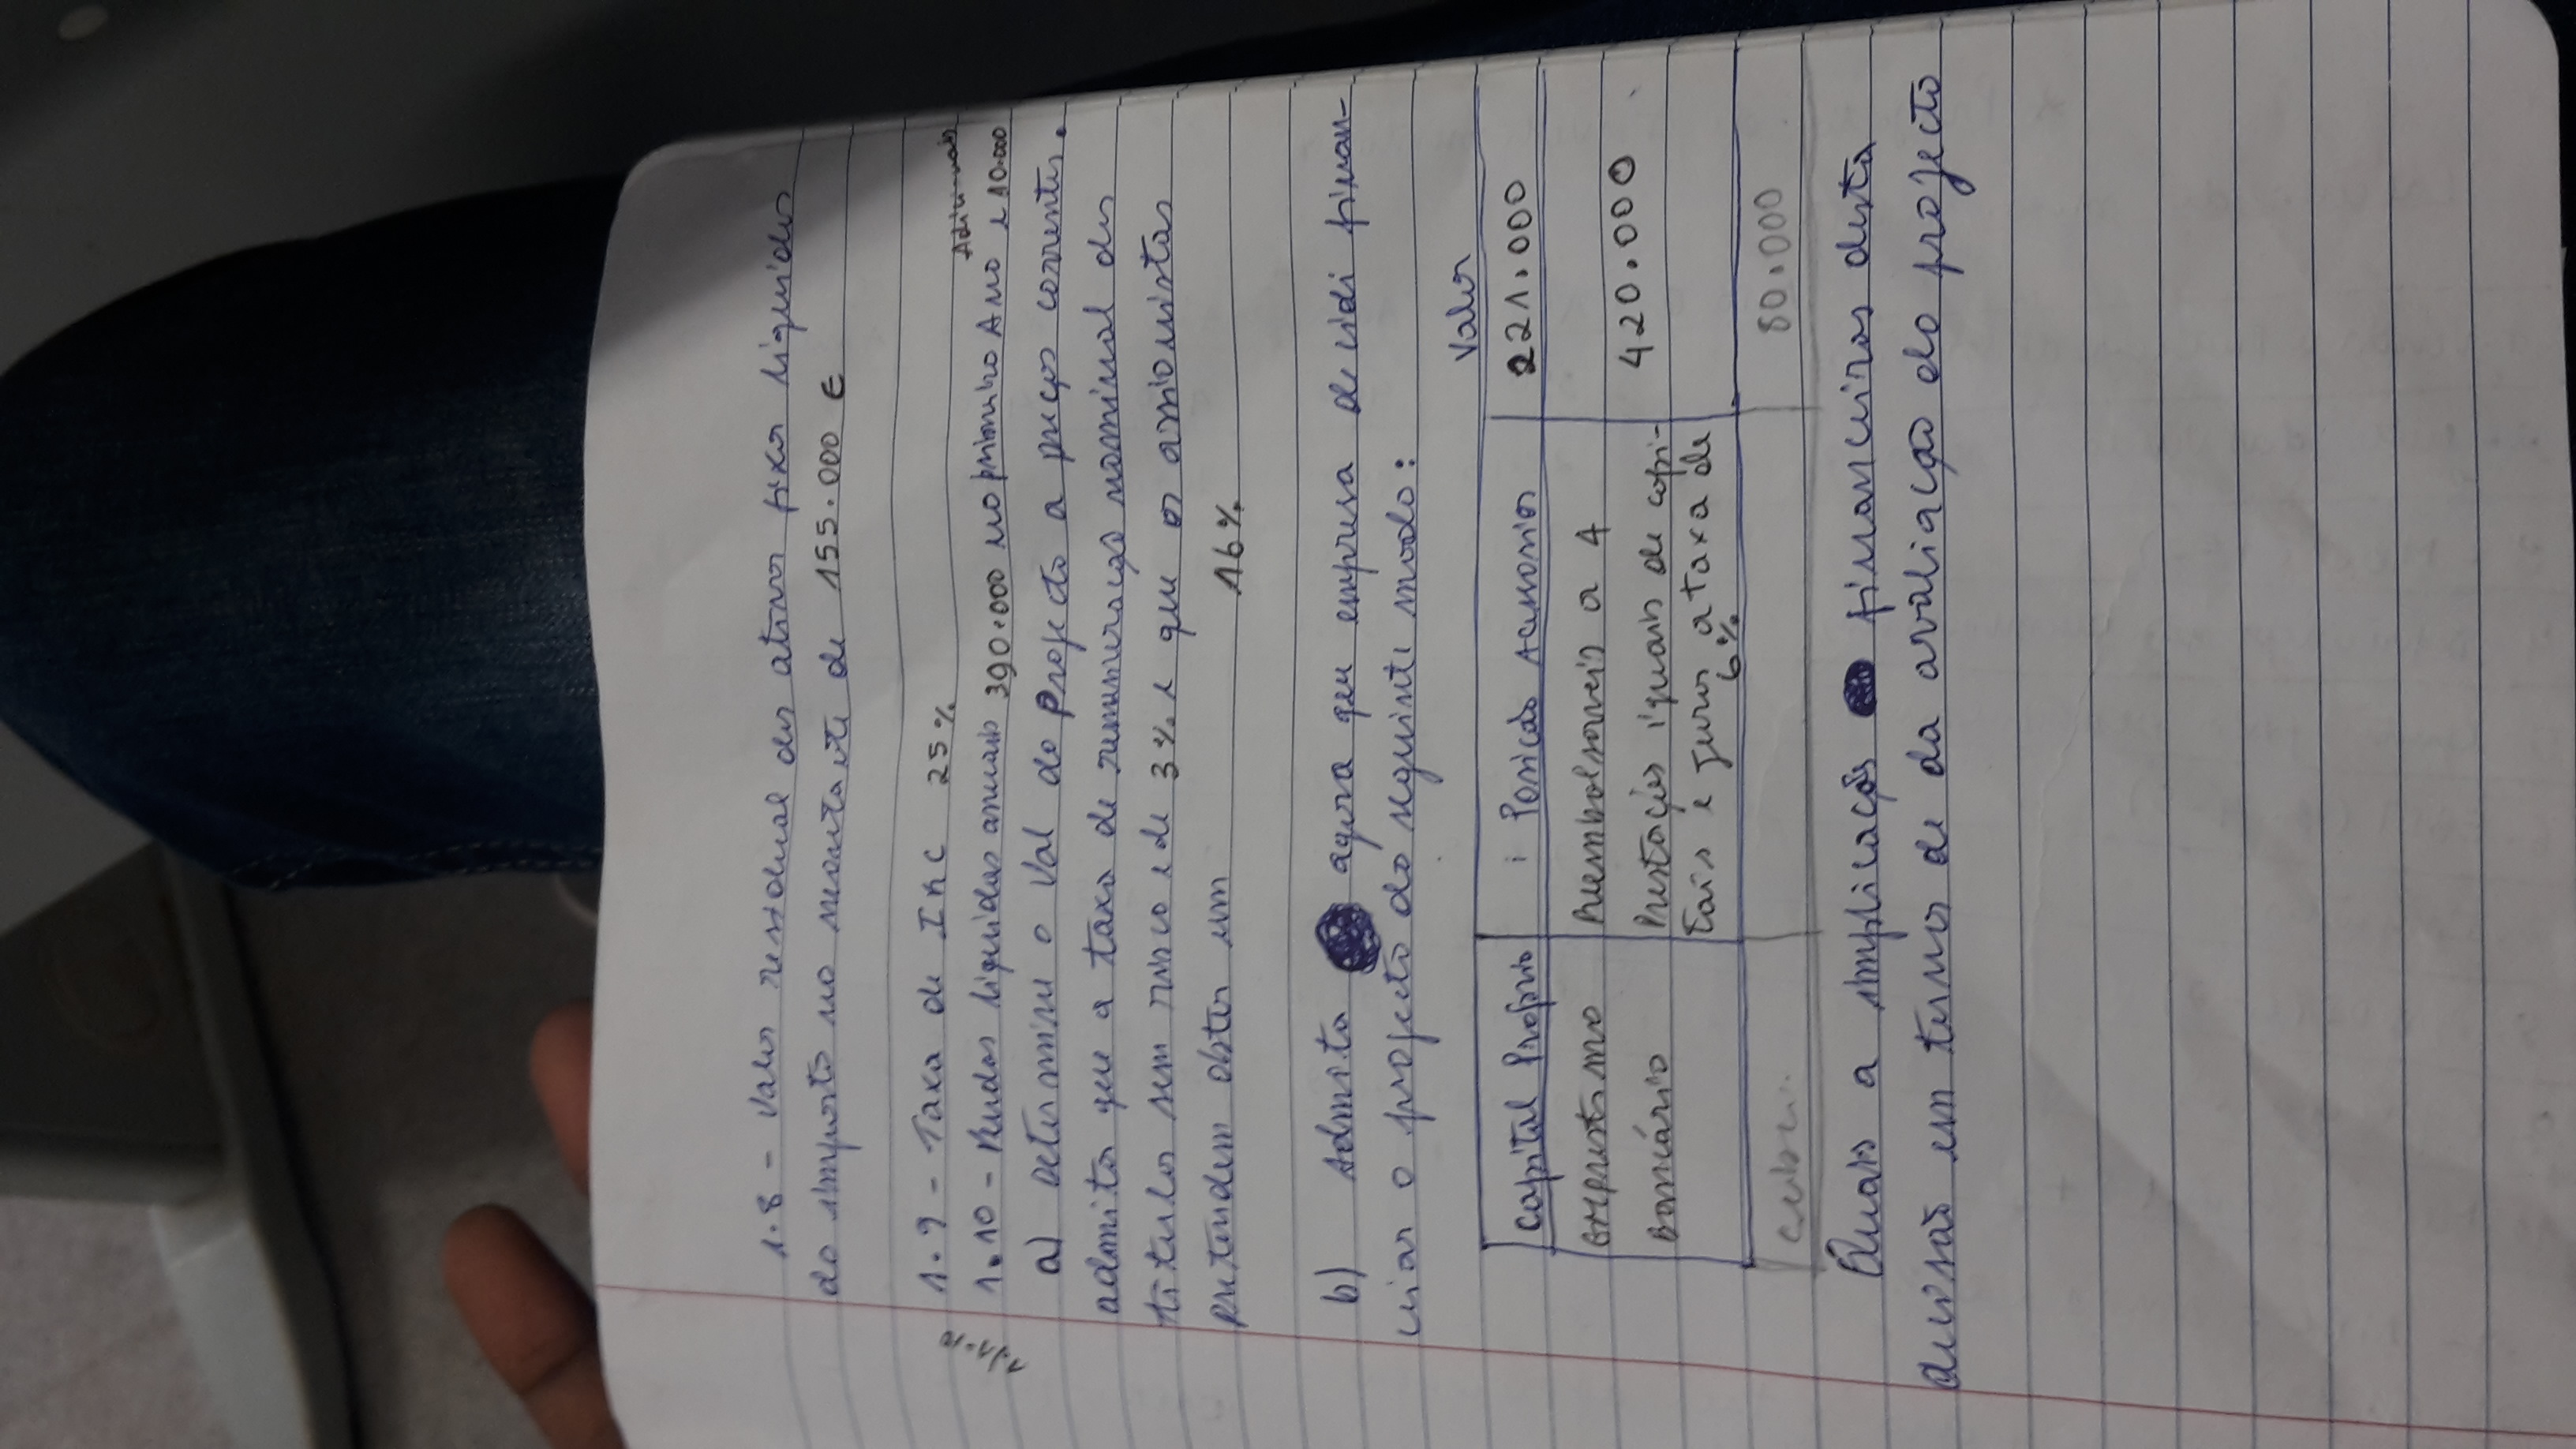 1.8 - Valor residual dos ativos fixos liquidos
do imposto no montante de 155.000 €
1.9 - Taxa de IRC 25%
Adicionais
1.10 - Rendas liquidas anuais 390.000 no primeiro Ano e 10.000
a) Determine o Val do Projecto a preços correntes.
admita que a taxa de remuneração nominal dos
titulos sem risco e de 3% e que os assionistas
pretendem obter um 16%
b) Admita agora que empresa decidi finan-
ciar o projecto do seguinte modo:
Valor
Capital Proprio Posição 221.000
Emprestimo Reembolsaveis a 4
420.000
Bancário Prestações iguais de capi-
tais e juros a taxa de
6%
80.000
Quais a implicações financeiras desta
decisão em termos de da avaliação do projecto